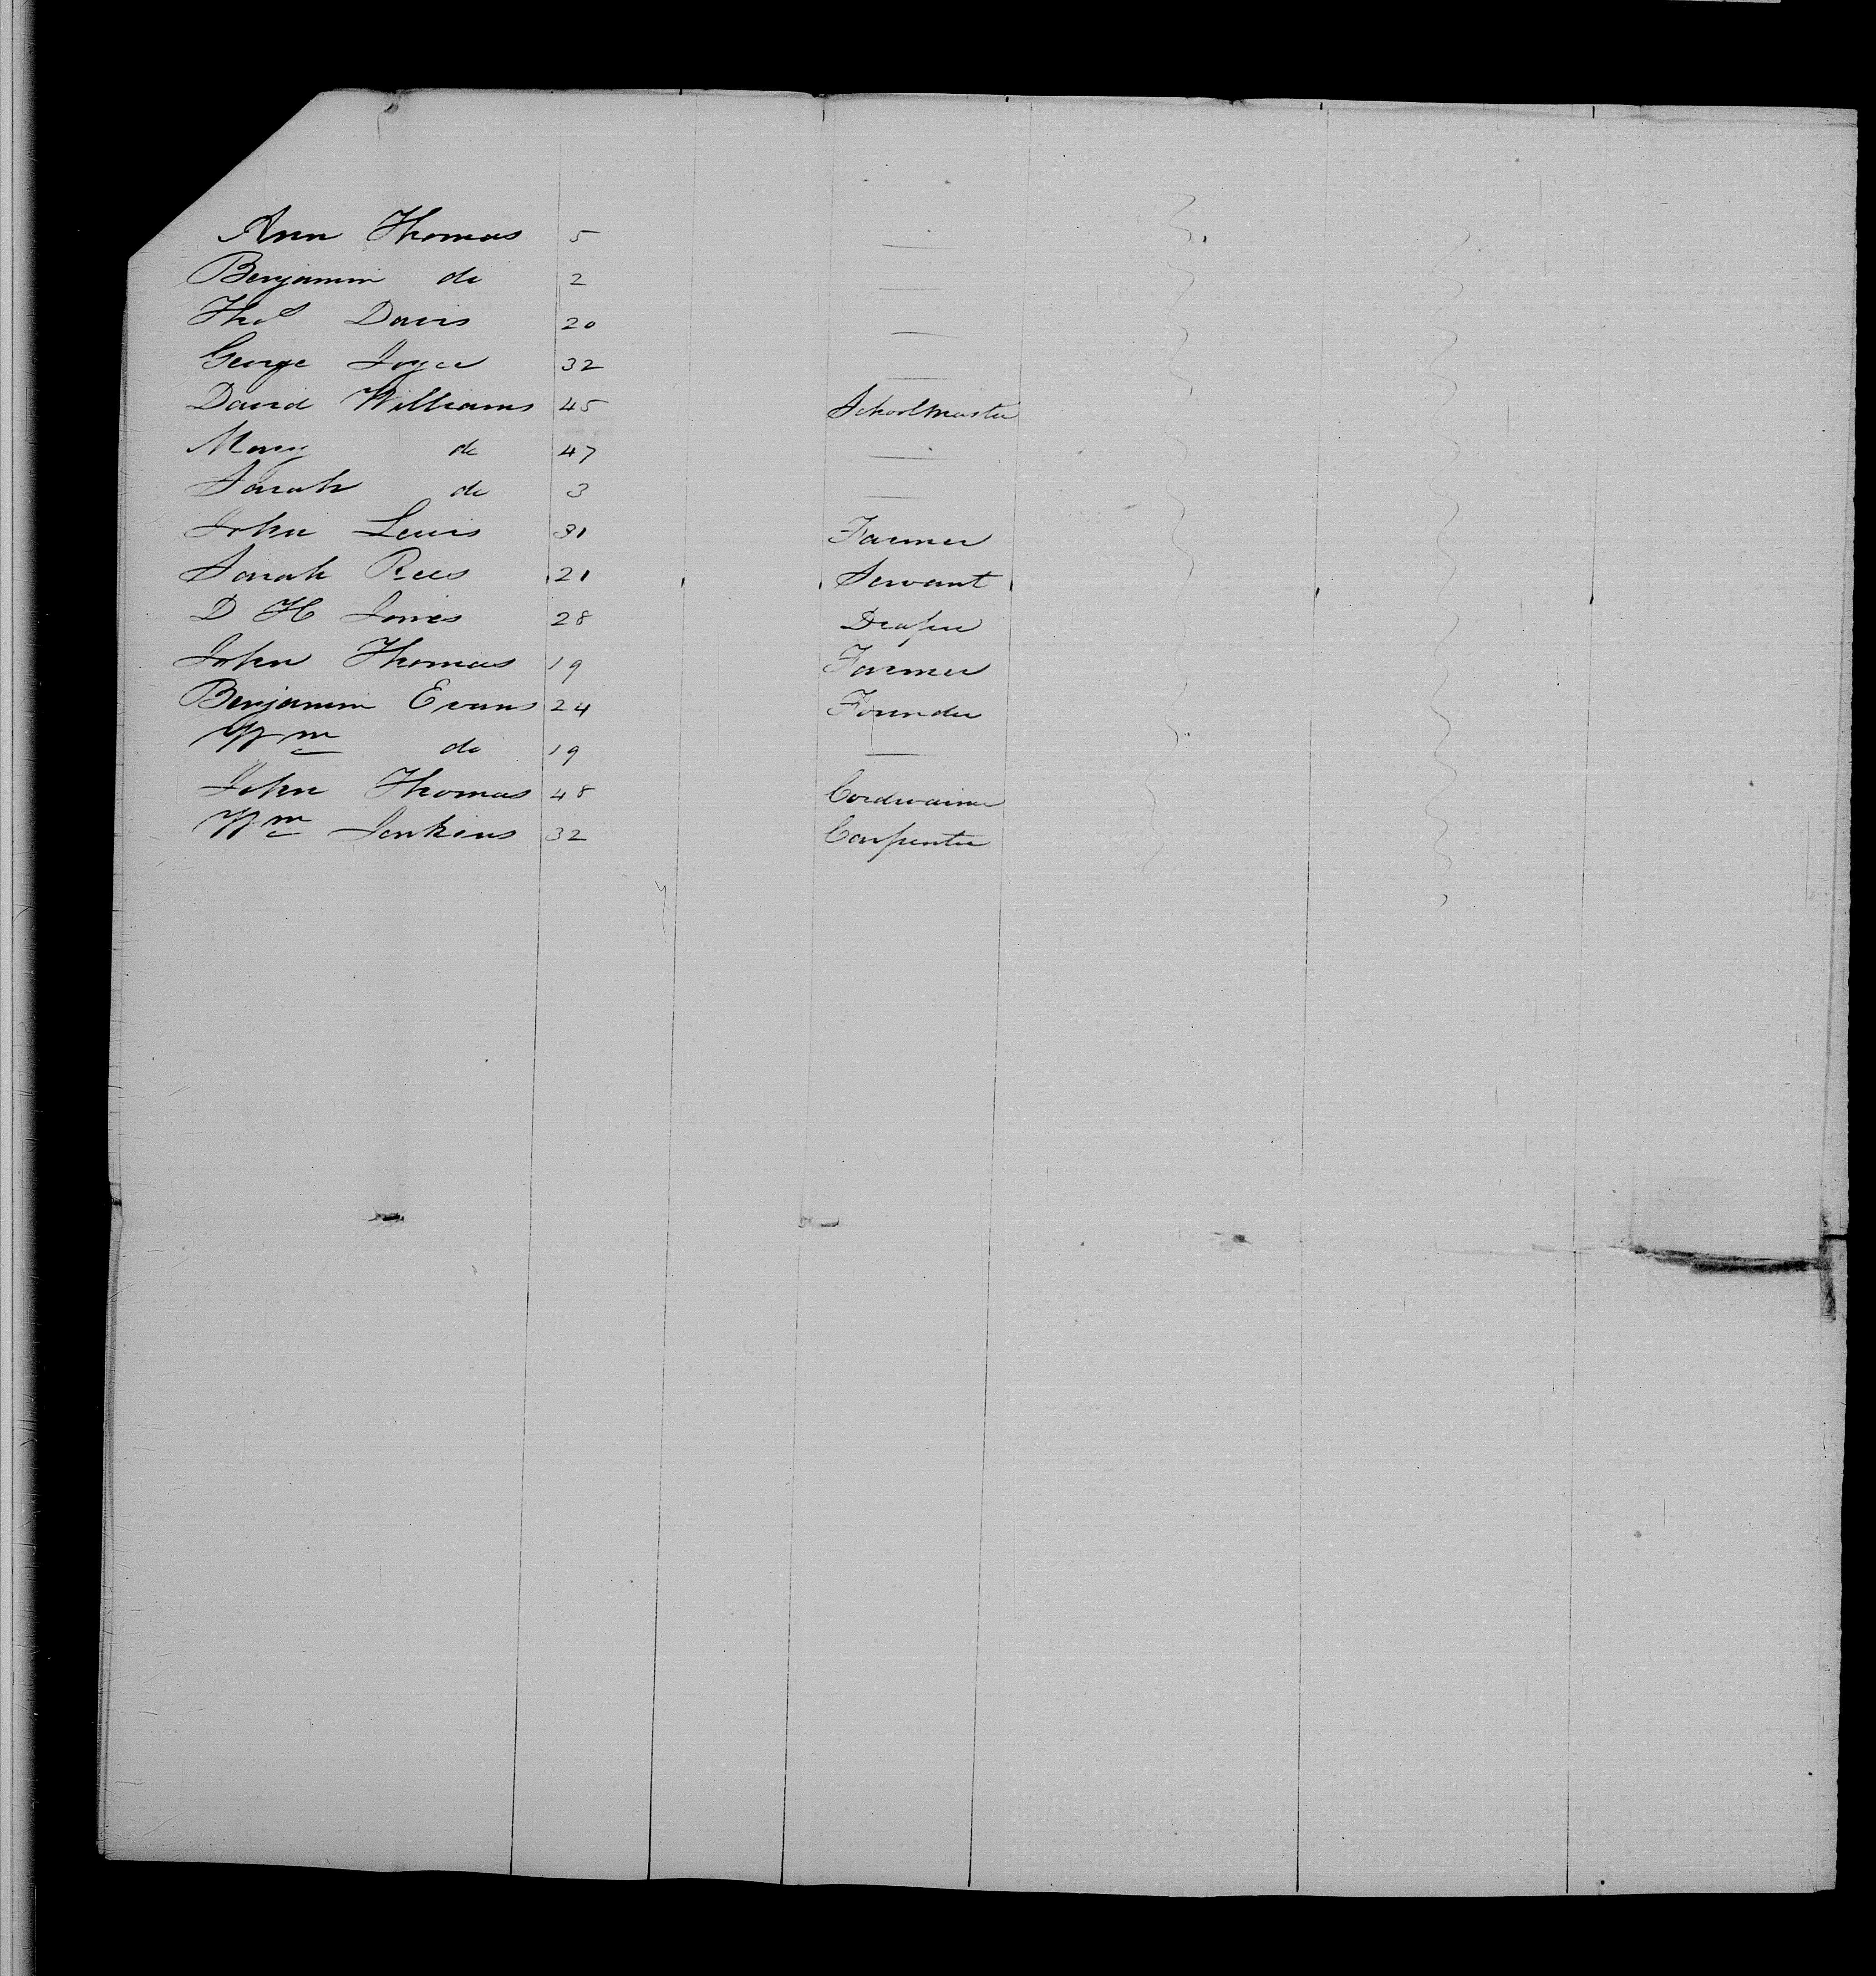 Ann Thomas 5 —
Benjamin do 2 —
Thos Davis 20 —
George Joyce 32 —
David Williams 45 Schoolmaster
Mary do 47 —
Sarah do 3 —
John Lewis 31 Farmer
Sarah Rees 21 Servant
D H Jones 28 Draper
John Thomas 19 Farmer
Benjamin Evans 24 Founder
Wm do 19 —
John Thomas 48 Cordwainer
Wm Jenkins 32 Carpenter